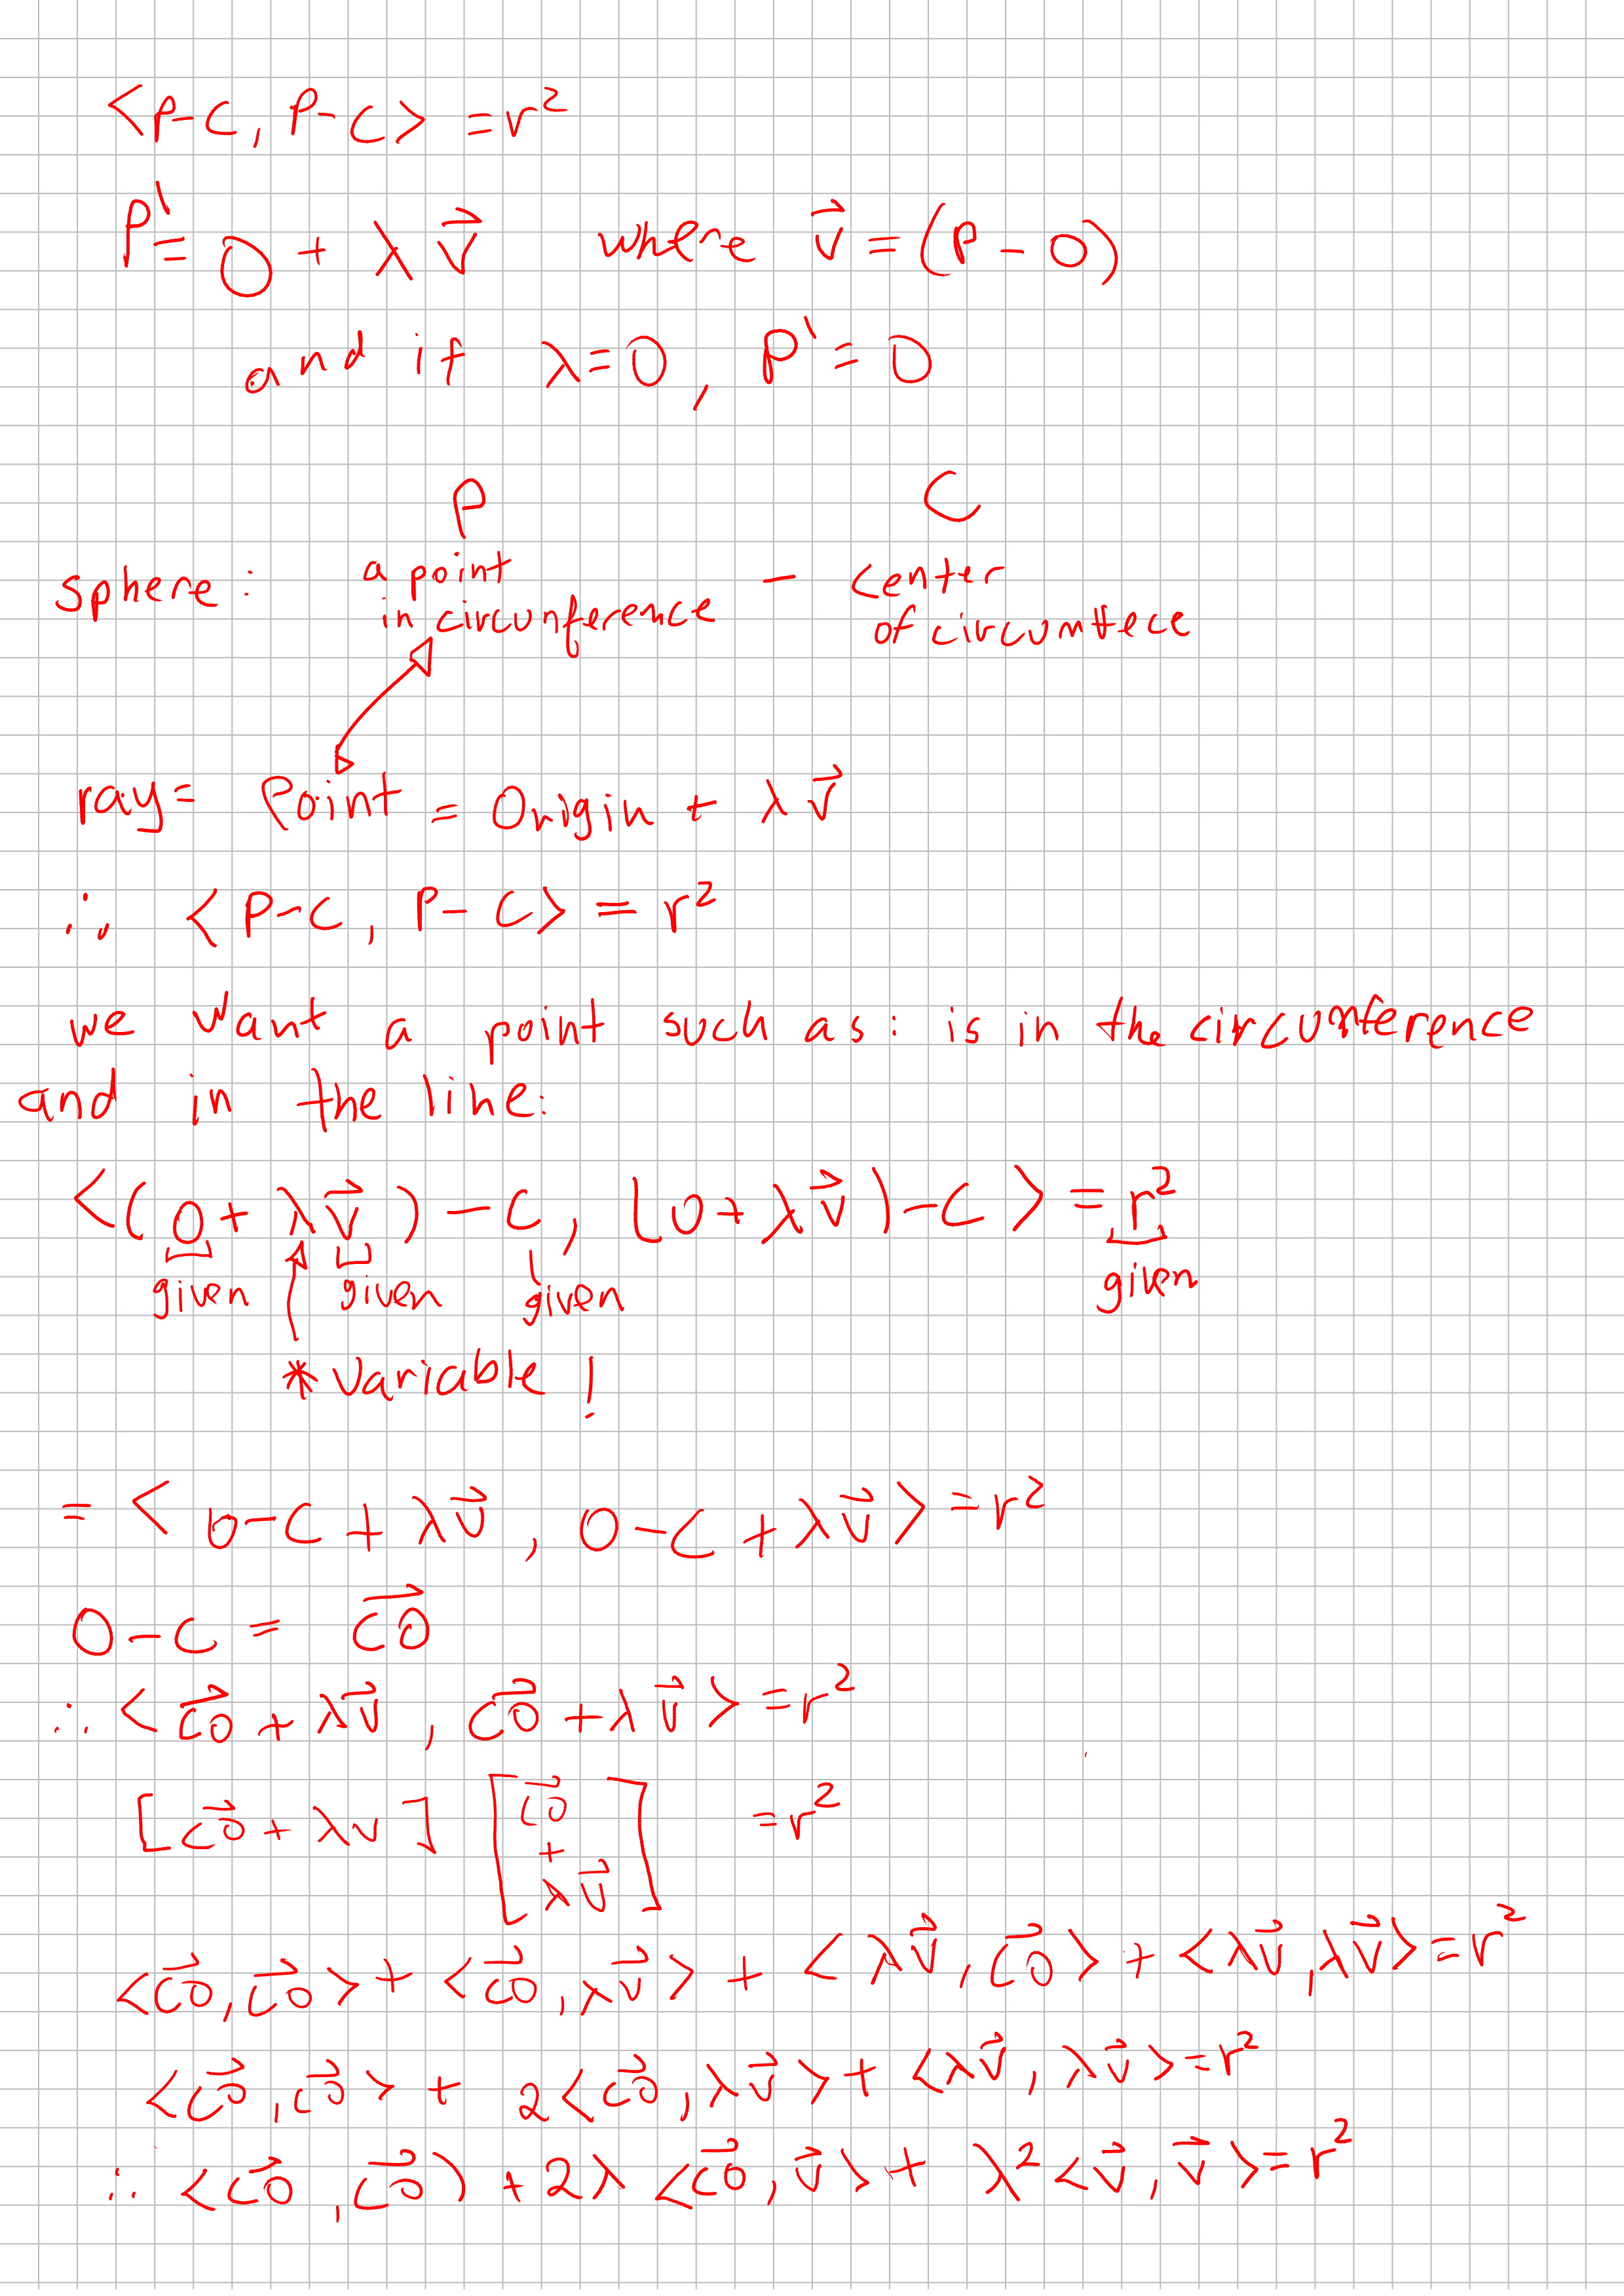 <P-C, P-C> = r²
P' = O + λv⃗ where v⃗ = (P - O)
and if λ=0, P' = O
P C
sphere: a point in circunference - center
of circumttece
ray = Point = Origin + λv⃗
∴ <P-C, P-C> = r²
we want a point such as: is in the circunference
and in the line:
<(O + λv⃗) - C, (O + λv⃗) - C> = r²
given given given given
* variable!
= <O-C + λv⃗, O-C + λv⃗> = r²
O-C = CO⃗
∴ <CO⃗ + λv⃗, CO⃗ + λv⃗> = r²
[CO⃗ + λv] [CO⃗ + λv⃗] = r²
<CO⃗, CO⃗> + <CO⃗, λv⃗> + <λv⃗, CO⃗> + <λv⃗, λv⃗> = r²
<CO⃗, CO⃗> + 2<CO⃗, λv⃗> + <λv⃗, λv⃗> = r²
∴ <CO⃗, CO⃗> + 2λ<CO⃗, v⃗> + λ²<v⃗, v⃗> = r²